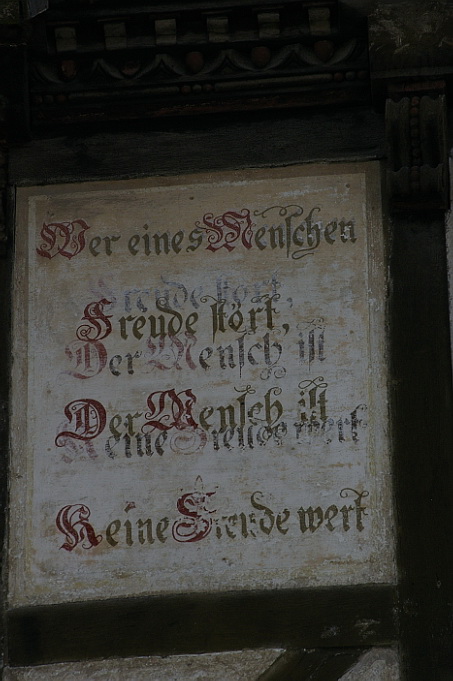 Wer eines Menschen
Freude stört,
Freude stört,
Der Mensch ist
Der Mensch ist
Keine Freude wert
Keine Freude wert